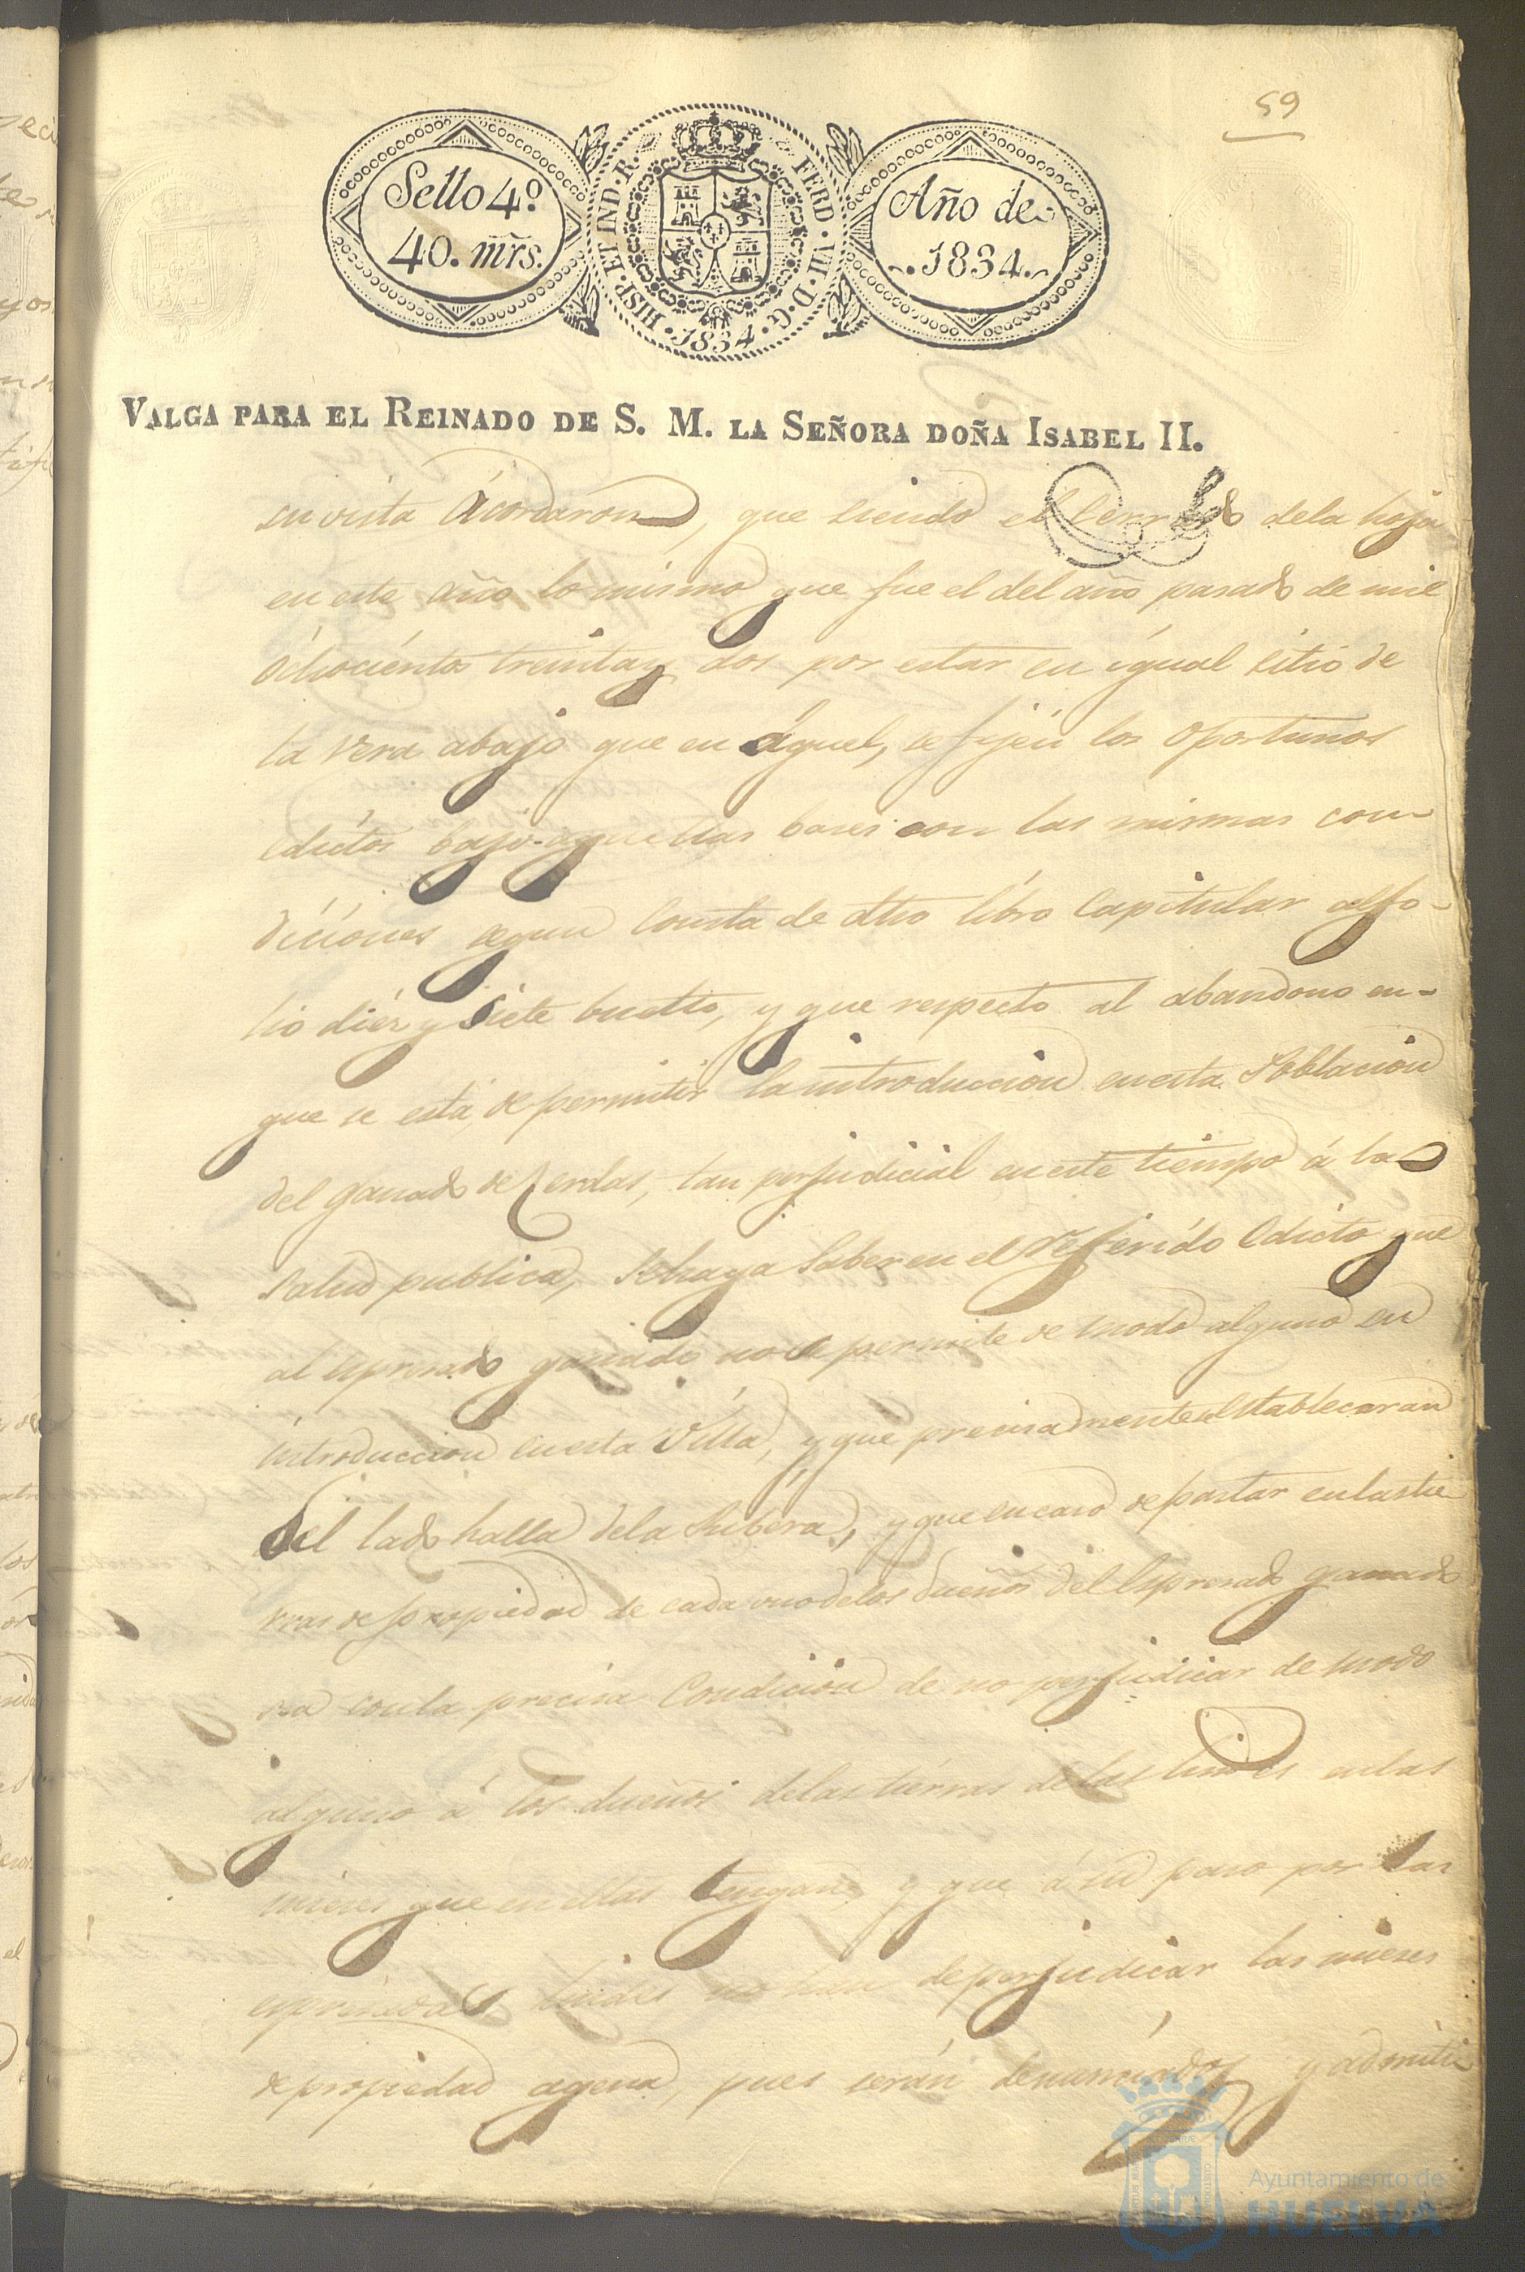 59
Sello 4º
40. mr̃s.
HISP. ET IND. R.
FERD. VII. D. G.
1834
Año de
1834.
VALGA PARA EL REINADO DE S. M. LA SEÑORA DOÑA ISABEL II.
en vista Acordaron, que siendo el Cerrado dela hoja
en este año lo mismo que fue el del año pasado de mil
ôchociéntos treinta y dos por estar en ígual sitio de
la Vera abajo que en áquel, se fijen los oportunos
edictos bajo aquellas bases con las mismas con-
diciones segun Consta de dho líbro Capitular alfo-
lio diéz y siete buelto, y que respecto al abandono en-
que se está de permitir la introduccion en esta Poblacion
del ganado de Cerdas, tan perjudicial en este tiempo á la
Salud publica, se haga Saber en el referído Edicto que
al espresado ganado no se permite de modo alguno su
introduccion en esta Villa, y que precisamente establecaran
del lado halla dela Ribera, y que en caso de pastar en las tie
rras de propiedad de cada uno delos dueños del Espresado ganado
sea con la precisa Condicion de no perjudicar de modo
alguno á los dueños delas tiérras delas lindes en las
mieses que en ellas tengan, y que á su paso por las
espresadas lindes no han de perjudicar las mieses
de propiedad agena, pues serán denunciados y admiti
Ayuntamiento de
HUELVA